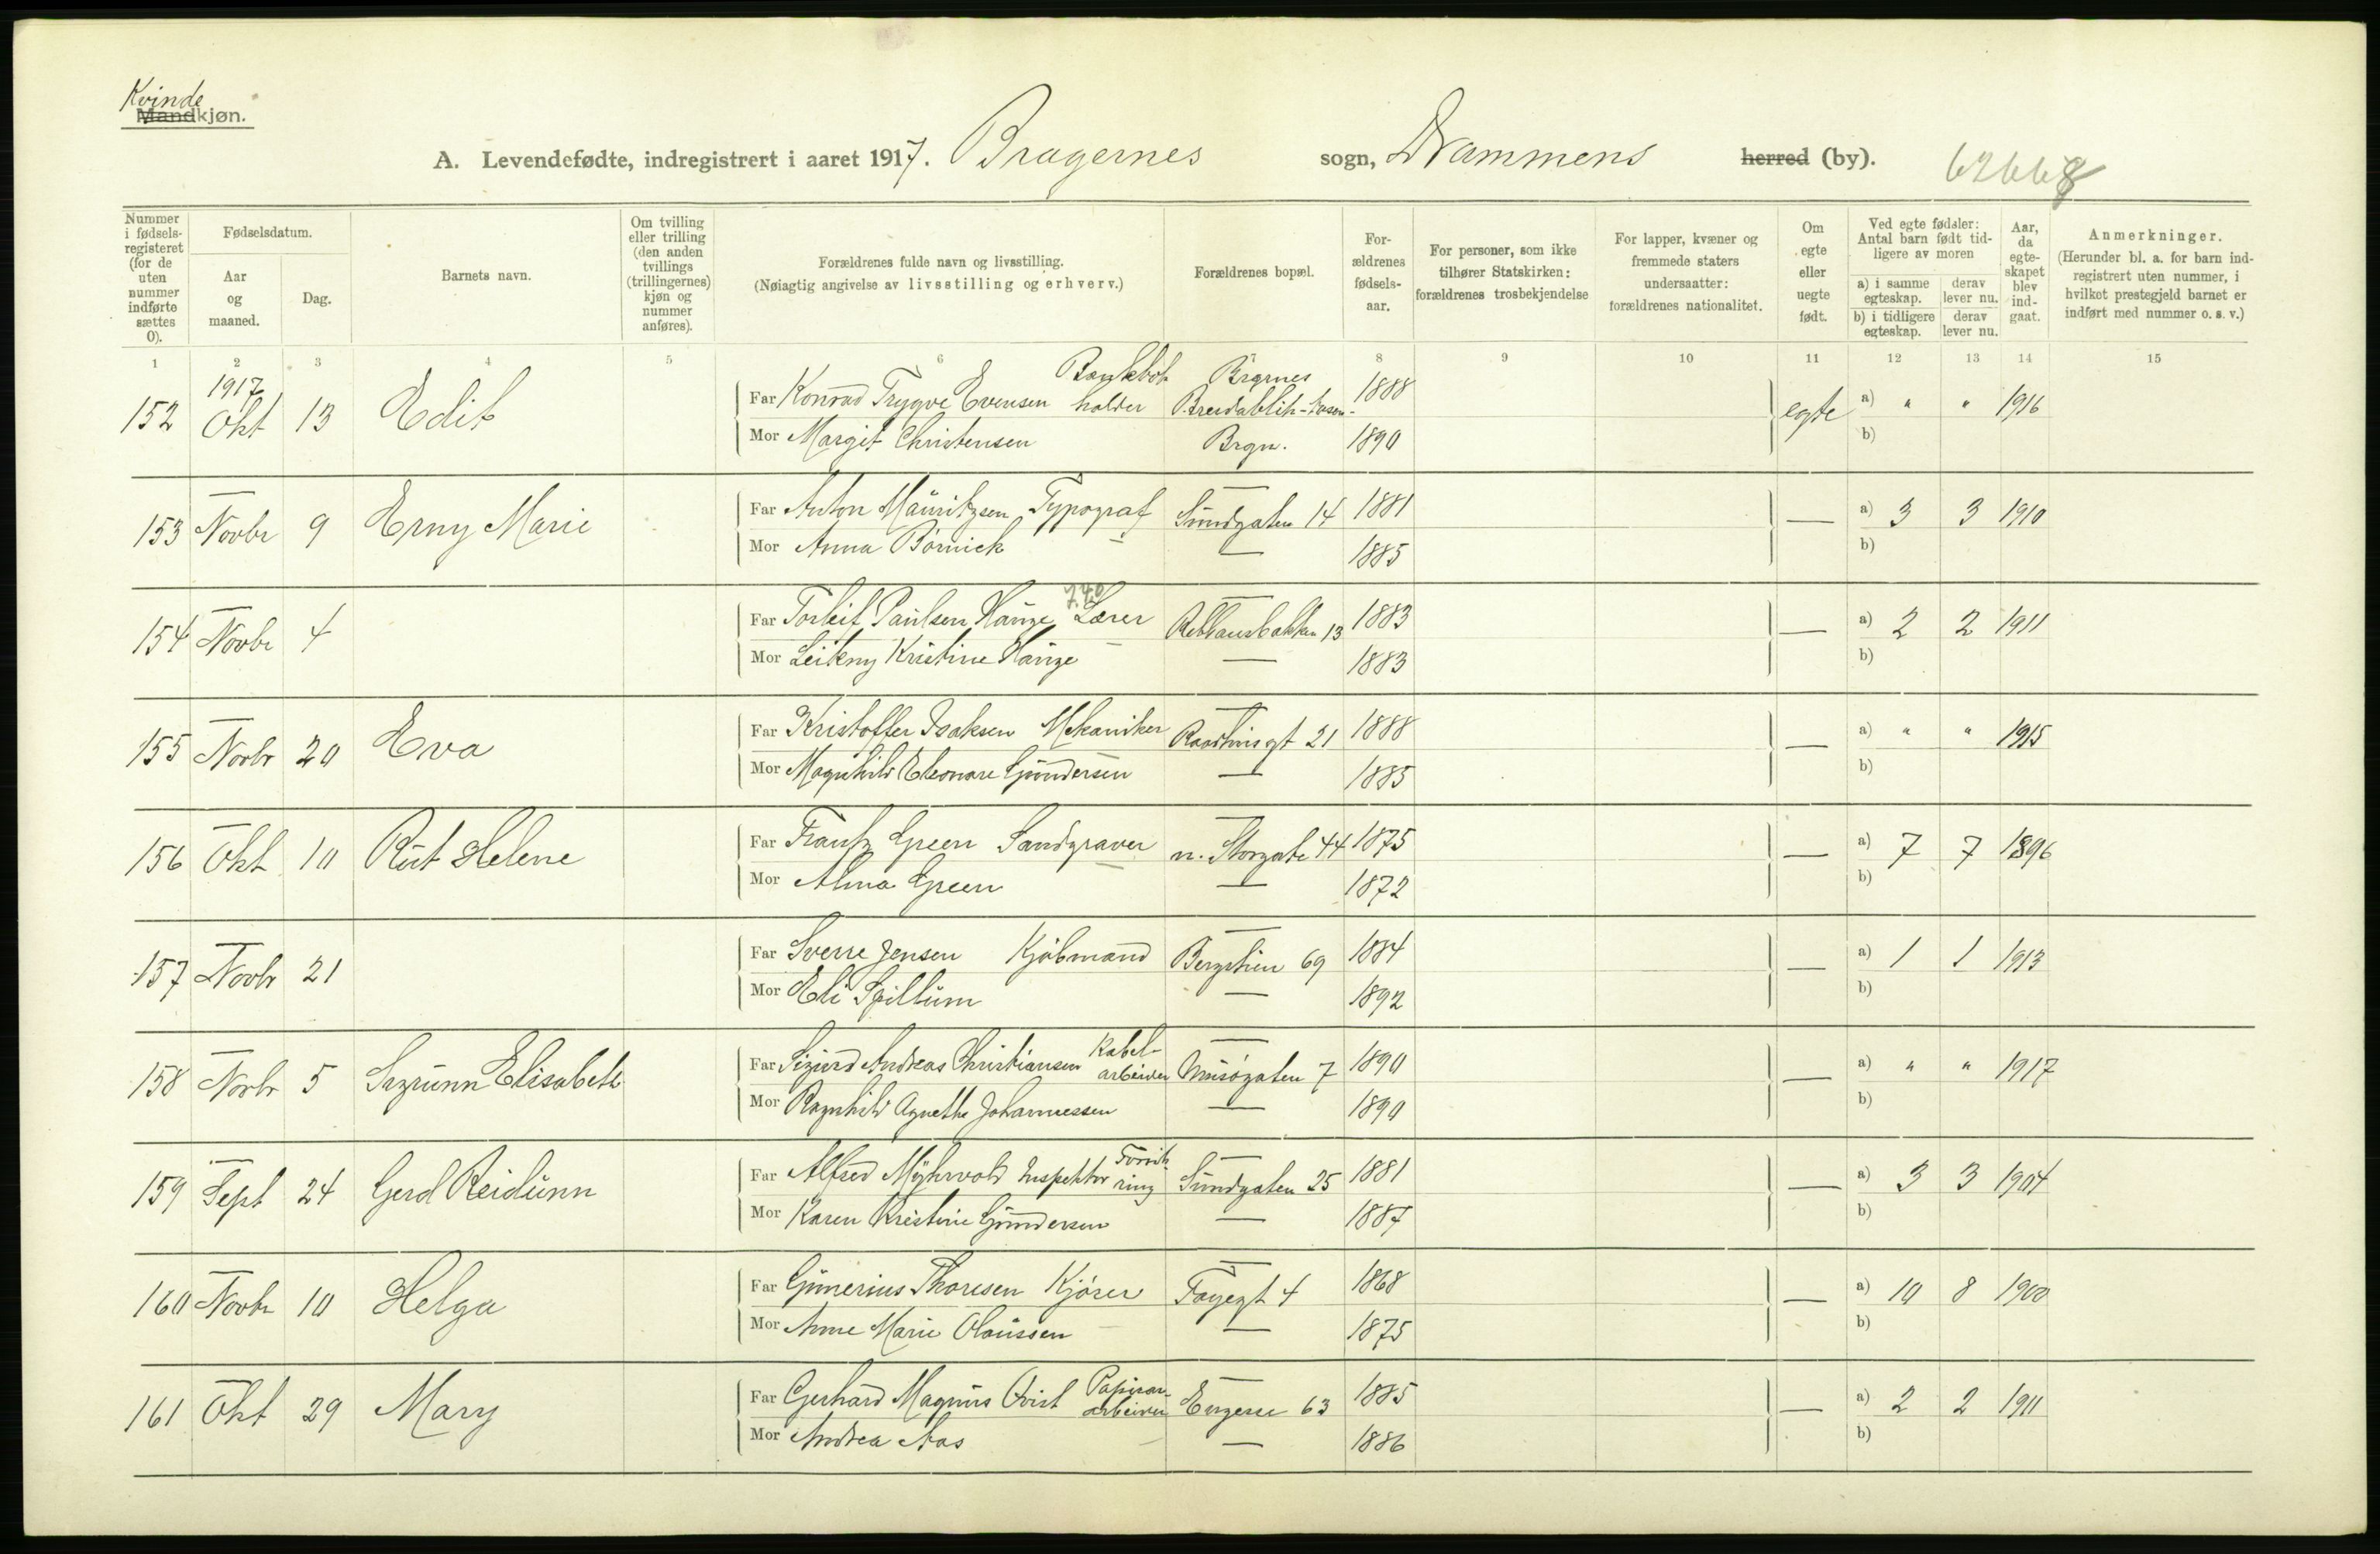 Kvinde
Mandkjøn.
A. Levendefødte, indregistrert i aaret 1917. Bragernes sogn, Drammens herred (by). 62668
Nummer i fødsels-registeret (for de uten nummer indførte sættes 0).
Fødselsdatum.
Aar og maaned.
Dag.
Barnets navn.
Om tvilling eller trilling (den anden tvillings (trillingernes) kjøn og nummer anføres).
Forældrenes fulde navn og livsstilling.
(Nøiagtig angivelse av livsstilling og erhverv.)
Forældrenes bopæl.
For-ældrenes fødsels-aar.
For personer, som ikke tilhører Statskirken: forældrenes trosbekjendelse
For lapper, kvæner og fremmede staters undersaatter: forældrenes nationalitet.
Om egte eller uegte født.
Ved egte fødsler: Antal barn født tid-ligere av moren
a) i samme egteskap. derav lever nu.
b) i tidligere egteskap. derav lever nu.
Aar, da egte-skapet blev ind-gaat.
Anmerkninger.
(Herunder bl. a. for barn ind-registrert uten nummer, i hvilket prestegjeld barnet er indført med nummer o. s. v.)
1 2 3 4 5 6 7 8 9 10 11 12 13 14 15
1917
152 Okt 13 Edit Far Konrad Trygve Evensen Bankbok holder Brgrnes 1888 egte a) " " 1916
Mor Margit Christensen Brgn. 1890 b)
153 Novbr 9 Erny Marie Far Anton Mauritzsen Typograf Sundgaten 14 1881 — a) 3 3 1910
Mor Anna Börnick — 1885 b)
740
154 Novbr 4 Far Torleif Paulsen Hauge Lærer Rebbansbakken 13 1883 — a) 2 2 1911
Mor Kristine Hauge — 1883 b)
155 Novbr 20 Eva Far Kristoffer Isaksen Mekaniker Raadhusgt 21 1888 — a) " " 1915
Mor Magnhild Eleonore Gundersen — 1885 b)
156 Okt 10 Rut Helene Far Frantz Green Sandgraver n. Storgate 44 1875 — a) 7 7 1896
Mor Alma Green — 1872 b)
157 Novbr 21 Far Sverre Jensen Kjøbmand Bergstien 69 1884 — a) 1 1 1913
Mor Eli Spillum — 1892 b)
158 Novbr 5 Sigrunn Elisabeth Far Sigurd Andreas Christiansen Kabel-arbeider Nusögaten 7 1890 — a) " " 1917
Mor Ragnhild Agnethe Johannessen — 1890 b)
159 Sept 24 Gerd Reidunn Far Alfred Myhrvold Inspektør Forsik-ring Sundgaten 25 1881 — a) 3 3 1904
Mor Karen Kristine Gundersen — 1887 b)
160 Novbr 10 Helga Far Gunerius Thoresen Kjører Fayegt 4 1868 — a) 10 8 1900
Mor Anne Marie Olaussen — 1875 b)
161 Okt 29 Mary Far Gerhard Magnus Qvist Papirar-arbeider Engene 63 1885 — a) 2 2 1911
Mor Andrea Aas — 1886 b)